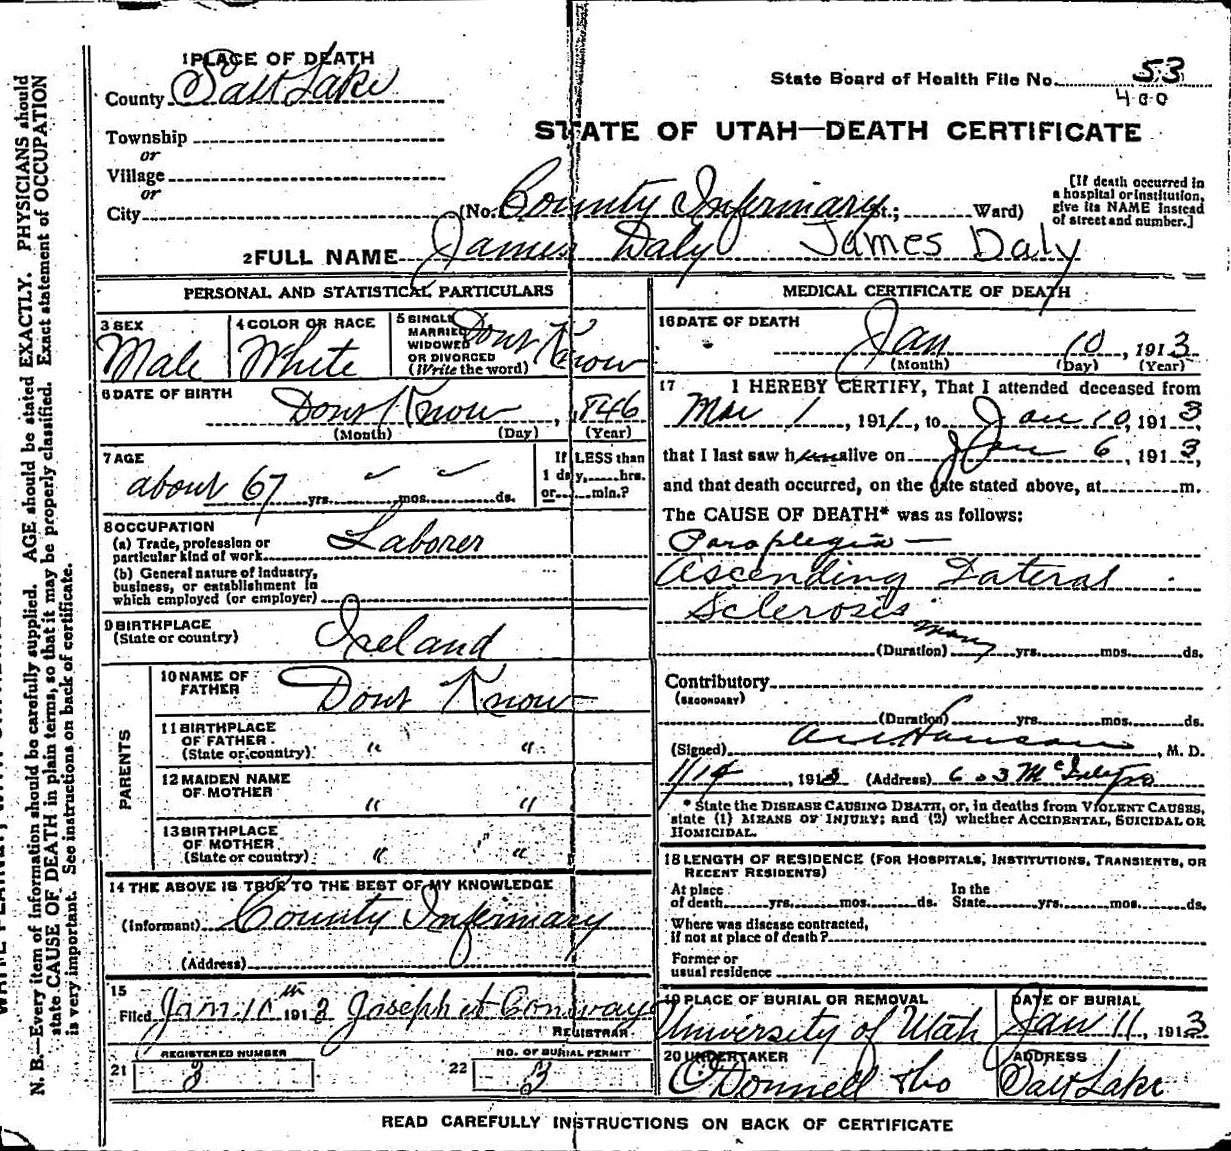 1 PLACE OF DEATH
County Salt Lake
Township
or
Village
or
City
State Board of Health File No. 53
400
STATE OF UTAH—DEATH CERTIFICATE
(No. County Infirmary St.; Ward)
[If death occurred in
a hospital or institution,
give its NAME instead
of street and number.]
2 FULL NAME James Daly James Daly
PERSONAL AND STATISTICAL PARTICULARS
3 SEX
Male
4 COLOR OR RACE
White
5 SINGLE
MARRIED
WIDOWED
OR DIVORCED
(Write the word)
Dont Know
6 DATE OF BIRTH
Dont Know, 1846
(Month) (Day) (Year)
7 AGE
about 67 yrs. mos. ds.
If LESS than
1 day, hrs.
or min.?
8 OCCUPATION
(a) Trade, profession or
particular kind of work Laborer
(b) General nature of industry,
business, or establishment in
which employed (or employer)
9 BIRTHPLACE
(State or country) Ireland
PARENTS
10 NAME OF
FATHER Dont Know
11 BIRTHPLACE
OF FATHER
(State or country) " "
12 MAIDEN NAME
OF MOTHER " "
13 BIRTHPLACE
OF MOTHER
(State or country) " "
14 THE ABOVE IS TRUE TO THE BEST OF MY KNOWLEDGE
(Informant) County Infirmary
(Address)
15
Filed Jan. 10th 1913 Joseph H Conway
REGISTRAR
21 REGISTERED NUMBER
3
22 NO. OF BURIAL PERMIT
3
MEDICAL CERTIFICATE OF DEATH
16 DATE OF DEATH
Jan 10, 1913
(Month) (Day) (Year)
17 I HEREBY CERTIFY, That I attended deceased from
Mar 1, 1911, to Jan 10, 1913,
that I last saw him alive on Jan 6, 1913,
and that death occurred, on the date stated above, at m.
The CAUSE OF DEATH* was as follows:
Paraplegia —
Ascending Lateral
Sclerosis
(Duration) many yrs. mos. ds.
Contributory
(SECONDARY)
(Duration) yrs. mos. ds.
(Signed) Hanson, M. D.
1/14, 1913 (Address) 603 McIntyre
* State the DISEASE CAUSING DEATH, or, in deaths from VIOLENT CAUSES,
state (1) MEANS OF INJURY; and (2) whether ACCIDENTAL, SUICIDAL OR
HOMICIDAL.
18 LENGTH OF RESIDENCE (FOR HOSPITALS, INSTITUTIONS, TRANSIENTS, OR
RECENT RESIDENTS)
At place
of death yrs. mos. ds.
In the
State yrs. mos. ds.
Where was disease contracted,
if not at place of death?
Former or
usual residence
19 PLACE OF BURIAL OR REMOVAL
University of Utah
DATE OF BURIAL
Jan 11, 1913
20 UNDERTAKER
O'Donnell
ADDRESS
Salt Lake
READ CAREFULLY INSTRUCTIONS ON BACK OF CERTIFICATE
N. B.—Every item of information should be carefully supplied. AGE should be stated EXACTLY. PHYSICIANS should
state CAUSE OF DEATH in plain terms, so that it may be properly classified. Exact statement of OCCUPATION
is very important. See instructions on back of certificate.